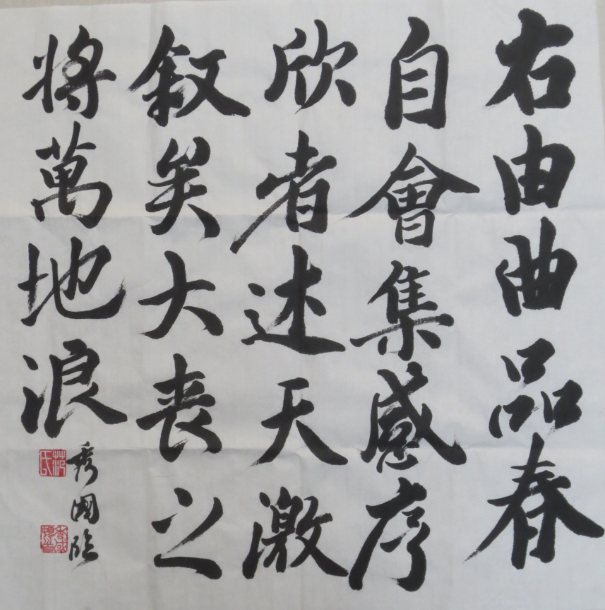 右由曲品春
自會集感序
欣者述天激
叙矣大丧之
將萬地浪
秀國臨